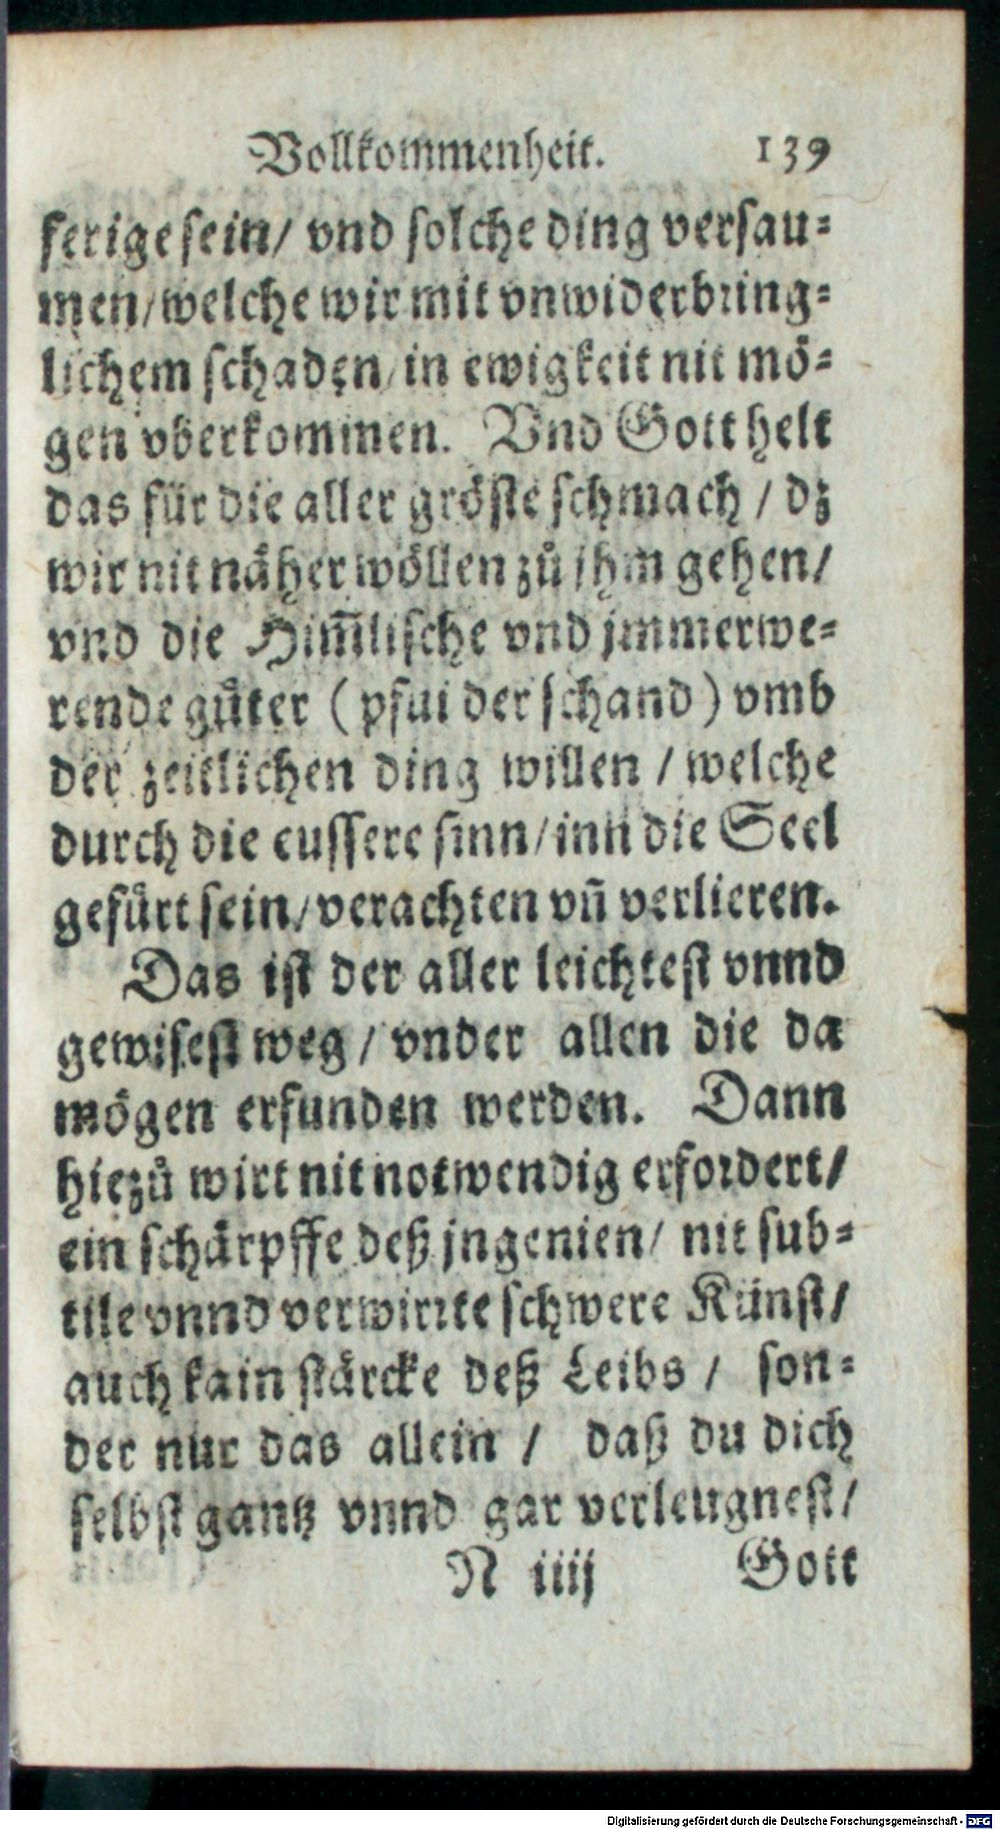 Vollkommenheit. 139
ferige sein/ vnd solche ding versau-
men/ welche wir mit vnwiderbring-
lichem schaden/ in ewigkeit nit mö-
gen vberkommen. Vnd Gott helt
das für die aller gröste schmach / dz
wir nit näher wöllen zů jhm gehen/
vnd die Him̃lische vnd jmmerwe-
rende gůter (pfui der schand) vmb
der zeitlichen ding willen / welche
durch die eussere sinn/ inn die Seel
gefürt sein/ verachten vñ verlieren.
Das ist der aller leichtest vnnd
gewisest weg / vnder allen die da
mögen erfunden werden. Dann
hiezů wirt nit notwendig erfordert/
ein schärpffe deß jngenien/ nit sub-
tile vnnd verwirrte schwere Künst/
auch kain stärcke deß Leibs / son-
der nur das allein / daß du dich
selbst gantz vnnd gar verleugnest/
N iiij Gott
Digitalisierung gefördert durch die Deutsche Forschungsgemeinschaft - DFG